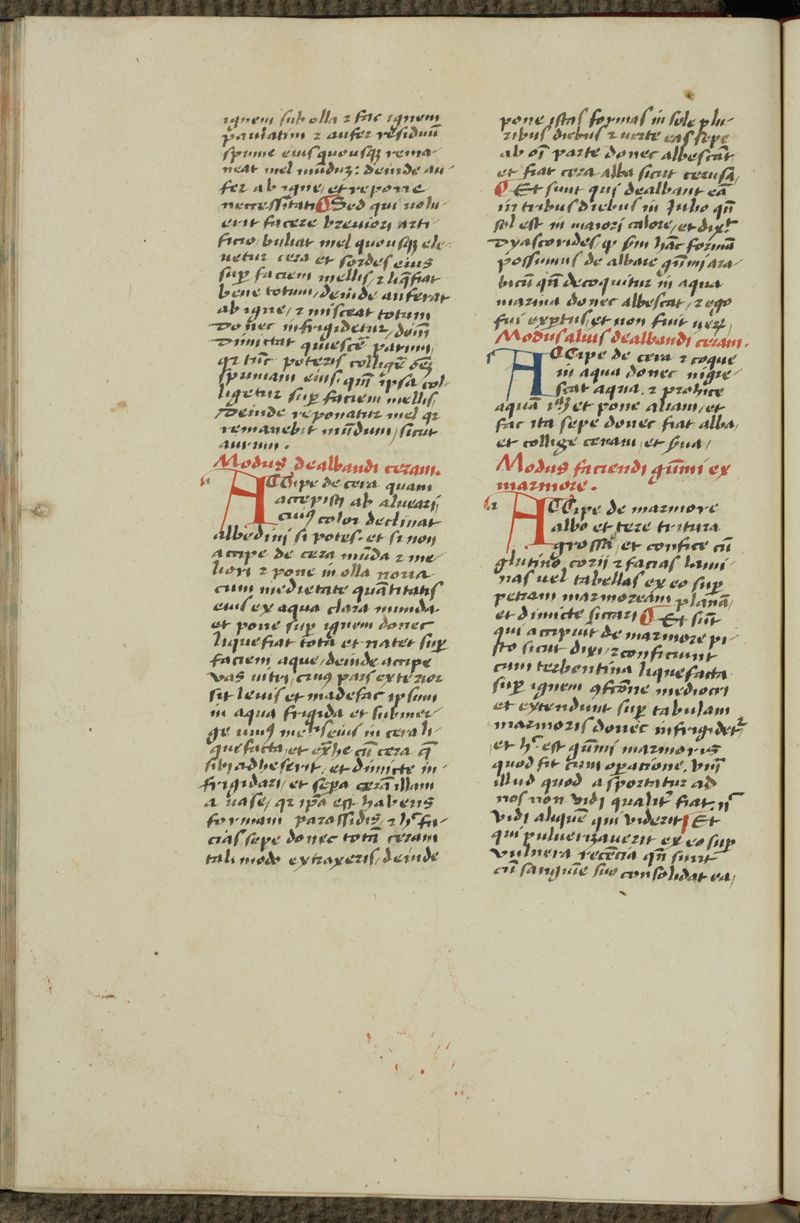 ignem sub olla ⁊ fac ignem
paulatim ⁊ aufer residuū
spume eius quousqꝫ rema⸗
neat mel mūdūꝫ: deinde au⸗
fer ab igne, et repone
necessitati Sed qui uolu⸗
erit facere breuiori arti⸗
ficio, buliat mel quousqꝫ ele⸗
uetur cera et sordes eius
suꝑ faciem mellis, ⁊ liq̄fiat
bene totum, deinde auferat
ab igne, ⁊ misceat totum
donec infrigidetur, deīn
dimittat quiescē parum,
qꝛ tūc poteris collige oēꝫ
spumam eius, qm̄ ip̄sa col⸗
ligetur suꝑ faciem mellis,
Deinde reponatur mel qꝛ
remanebit mūdum, sicut
aurum.
Modus dealbandi ceram.
a
ACCipe de cera quam
accepisti ab alueari,
cuiꝰ color declinat
albedini si potes. et si non
accipe de cera mūda ⁊ me⸗
liori ⁊ pone in olla noua
cum medietate quātitatis
eius ex aqua clara munda.
et pone suꝑ ignem donec
liquefiat tota et natet suꝑ
faciem aque, deinde accipe
vas uitri, cuiꝰ pars exterior
sit leuis et madefac ipsum
in aqua frigida et submer⸗
ge uniꝰ eius in cera li⸗
quefacta, et ex̄he cū cera q̄
sibi adheserit, et dimitte in⸗
frigidari, et sepa cerā illam
a uase, qꝛ ip̄a est habens
formam parossidis, ⁊ h̄ fa⸗
cias sepe donec totā ceram
tali modo extraxeris, deinde
pone istas formas in sole plu⸗
ribus diebus ⁊ uerte eas sepe
ab oī parte donec albescāt
et fiat cera alba sicut cerusa,
Et sunt qui dealbant eā
in tribus diebus in Julio qn̄
sol est in maiori calore, et dixit
Dyascorides ꝙ sm̄ hāc formā
possumus de albare gūmi ara⸗
bicū qn̄ decoquitur in aqua
marina donec albescat, ⁊ ego
fui exꝑtus, et non fuit ueꝝ,
Modus alius dealbandi ceram.
ACCipe de cera ⁊ coque
in aqua donec nigre⸗
scat aqua. ⁊ prohice
aquā et pone aliam, et
fac ita sepe donec fiat alba,
et collige ceram, et s̄ua,
Modus faciendi gūmi ex
marmore.
a
ACCipe de marmore
albo et tere tritura
grossa, et confice cū
glutino corij ⁊ facias lami⸗
nas uel tabellas ex eo suꝑ
petram marmoream planā,
et dimitte siccari Et sūt
qui accipiūt de marmore pi⸗
sto sicut dixi, ⁊ conficiunt
cum terbentina liquefacta
suꝑ ignem 9frōne mediocri
et extendunt suꝑ tabulam
marmoris donec infrigidetꝛ
et h̄ est gūmi marmoris
quod fit cum oꝑatione. Vnꝫ
illud quod asportatur ad
nos non vidi qualit̄ fiat,
vidi aliquē qui viderit Et
qui puluerizauerit ex eo suꝑ
vulnera recētia qn̄ sunt
cū sanguīe suo consolidat ea,